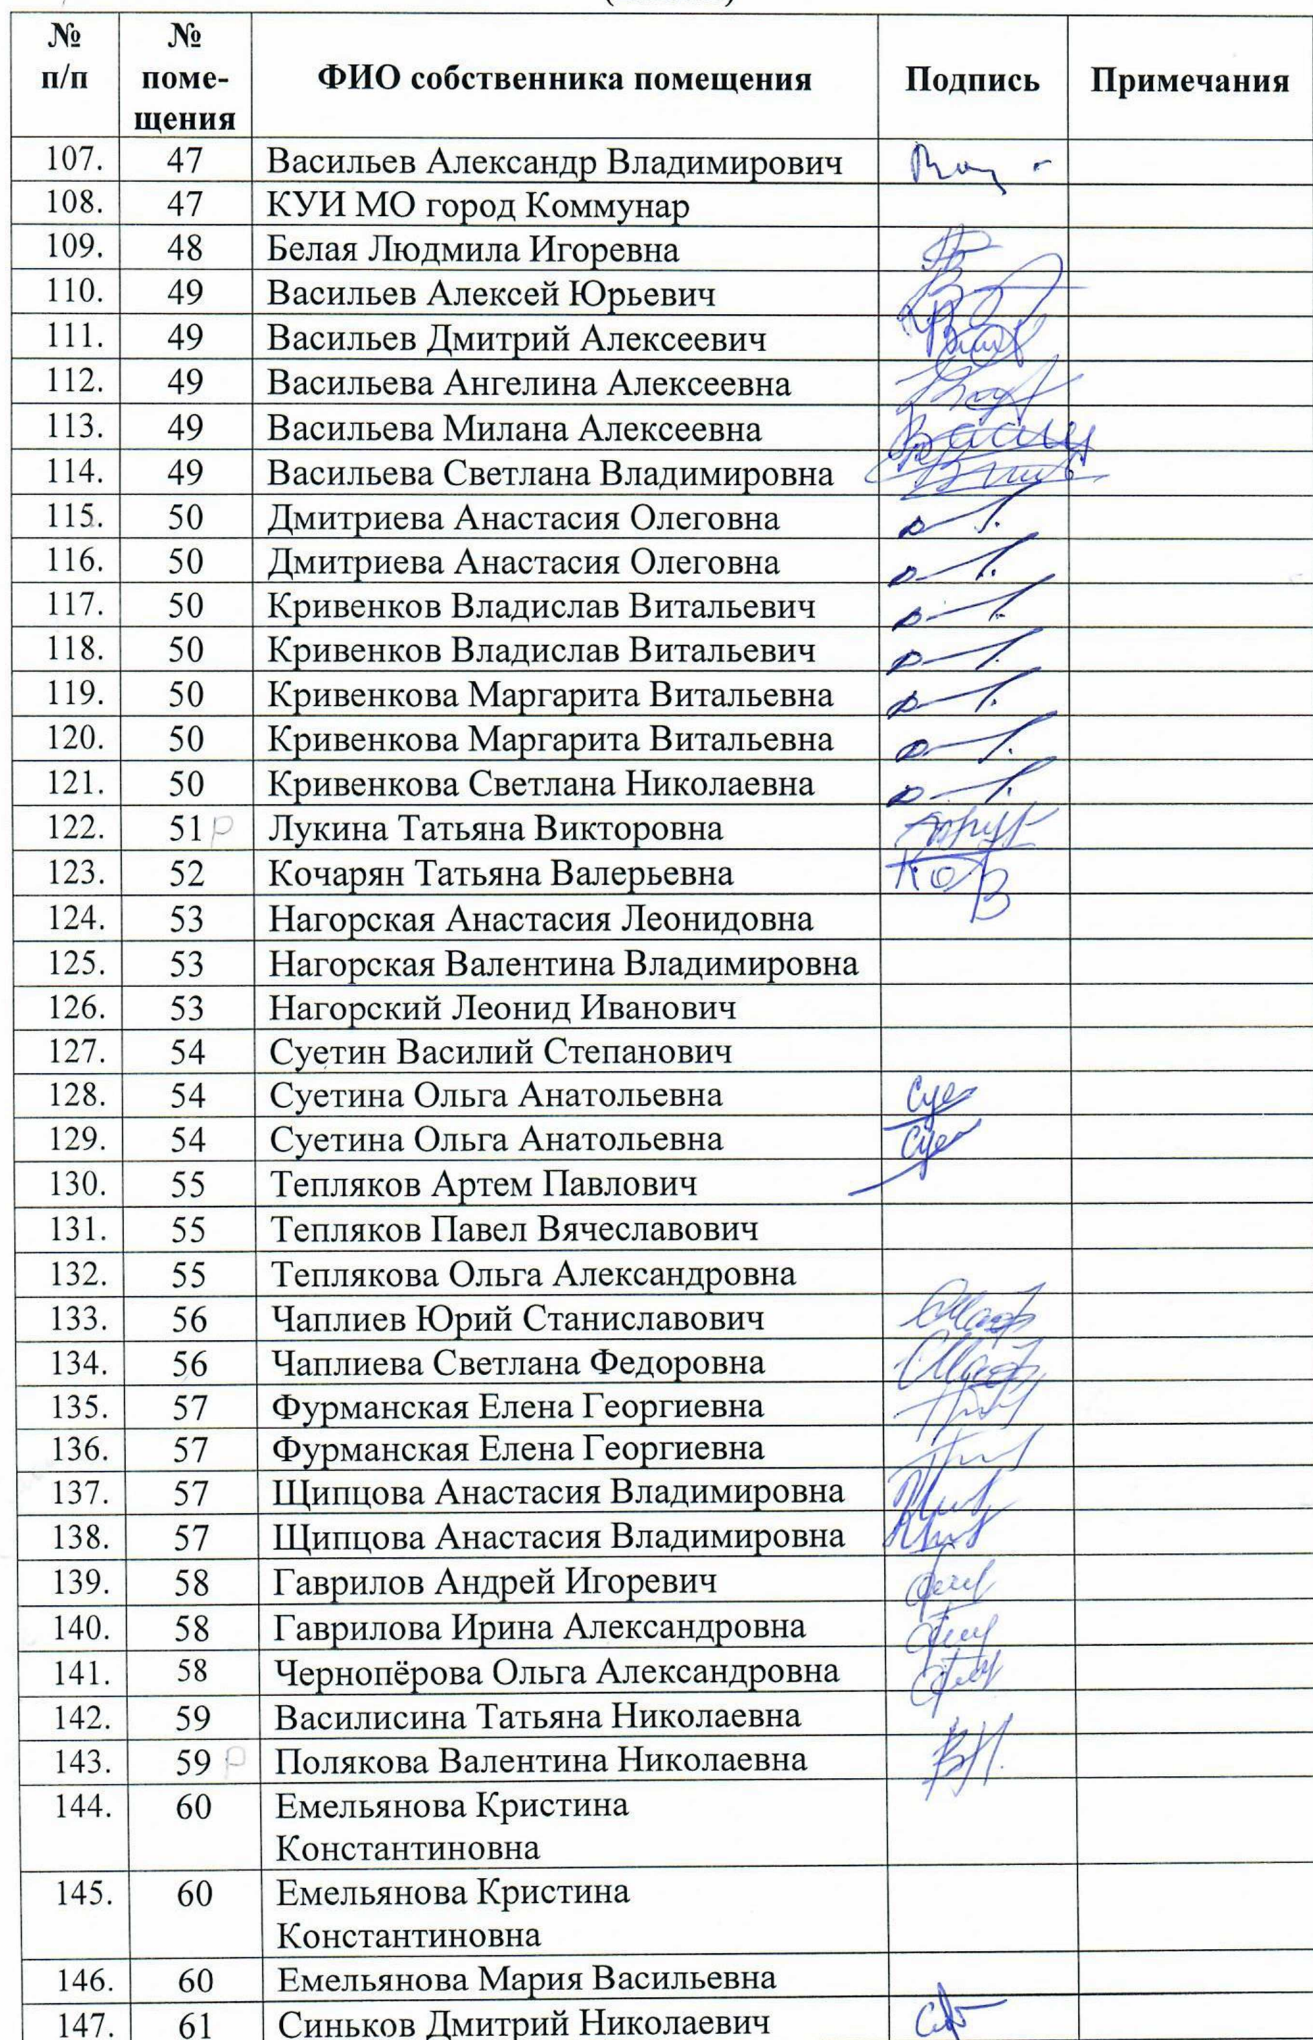 № п/п № поме- щения ФИО собственника помещения Подпись Примечания
107. 47 Васильев Александр Владимирович
108. 47 КУИ МО город Коммунар
109. 48 Белая Людмила Игоревна
110. 49 Васильев Алексей Юрьевич
111. 49 Васильев Дмитрий Алексеевич
112. 49 Васильева Ангелина Алексеевна
113. 49 Васильева Милана Алексеевна
114. 49 Васильева Светлана Владимировна
115. 50 Дмитриева Анастасия Олеговна
116. 50 Дмитриева Анастасия Олеговна
117. 50 Кривенков Владислав Витальевич
118. 50 Кривенков Владислав Витальевич
119. 50 Кривенкова Маргарита Витальевна
120. 50 Кривенкова Маргарита Витальевна
121. 50 Кривенкова Светлана Николаевна
122. 51 Р Лукина Татьяна Викторовна
123. 52 Кочарян Татьяна Валерьевна
124. 53 Нагорская Анастасия Леонидовна
125. 53 Нагорская Валентина Владимировна
126. 53 Нагорский Леонид Иванович
127. 54 Суетин Василий Степанович
128. 54 Суетина Ольга Анатольевна Суе
129. 54 Суетина Ольга Анатольевна Суе
130. 55 Тепляков Артем Павлович
131. 55 Тепляков Павел Вячеславович
132. 55 Теплякова Ольга Александровна
133. 56 Чаплиев Юрий Станиславович
134. 56 Чаплиева Светлана Федоровна
135. 57 Фурманская Елена Георгиевна
136. 57 Фурманская Елена Георгиевна
137. 57 Щипцова Анастасия Владимировна
138. 57 Щипцова Анастасия Владимировна
139. 58 Гаврилов Андрей Игоревич
140. 58 Гаврилова Ирина Александровна
141. 58 Чернопёрова Ольга Александровна
142. 59 Василисина Татьяна Николаевна
143. 59 Р Полякова Валентина Николаевна
144. 60 Емельянова Кристина
Константиновна
145. 60 Емельянова Кристина
Константиновна
146. 60 Емельянова Мария Васильевна
147. 61 Синьков Дмитрий Николаевич